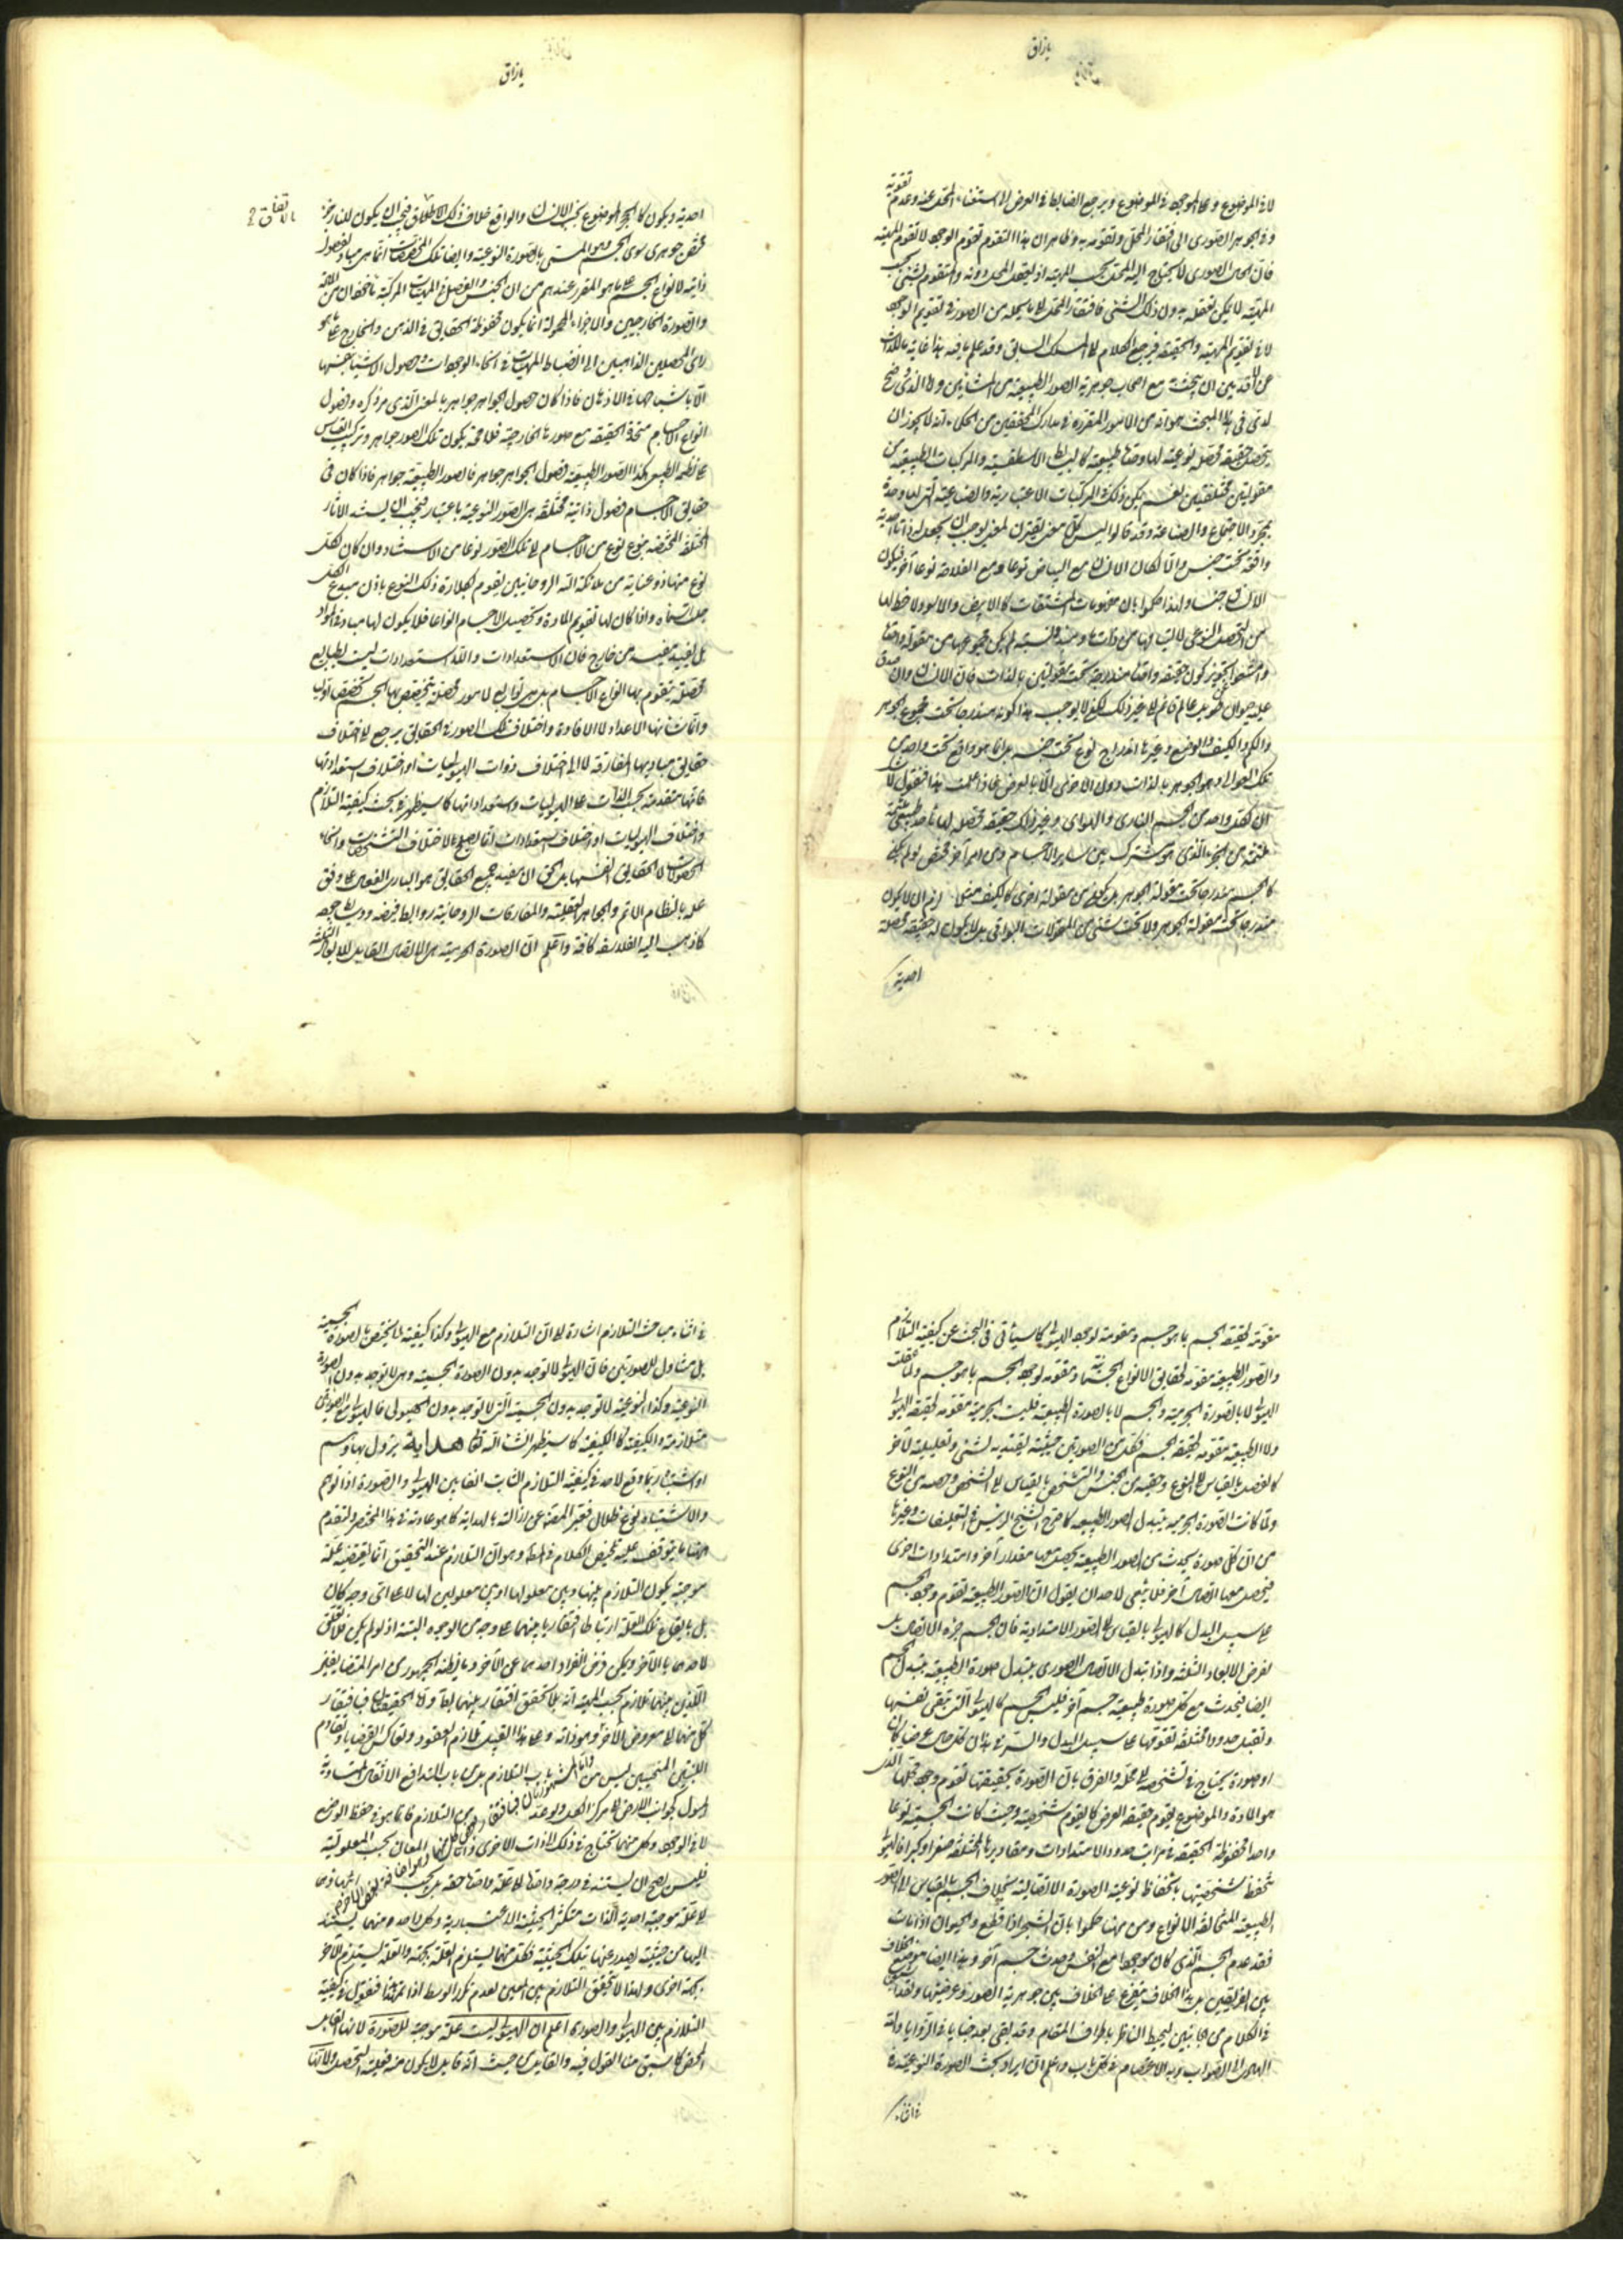 يا رزاق
لا في الموضوع وعلى الموجود في الموضوع ويرجع الضابط في العرض الى استغناء المحل عنه وعدم تقومه به
وفي الجوهر الصوري الى افتقار المحل وتقومه به وظاهر ان هذا التقوم تقوم الوجود لا تقوم المهية
فان المحل الصوري لا يحتاج اليه المحل بحسب المهية اذ يعقل المحل دونه والمتقوم بشيء بحسب
المهية لا يمكن تعقله بدون ذلك الشيء فافتقار المحل الى ما يحله من الصور في تقويم الوجود
لا في تقويم المهية والحقيقة فيرجع الكلام الى المسلك السابق وقد علم ما فيه هذا غاية ما
لاحد من ان يبحث مع اصحاب جوهرية الصور الطبيعية من المشائين واما الذي وضح
لدي في هذا المبحث هو انه من الامور المقررة في مدارك المحققين من الحكماء انه لا يجوز ان
يتحصل حقيقة محصلة نوعية لها وحدة طبيعية كالبسائط الاسطقسية والمركبات الطبيعية من
مقولتين مختلفتين نعم يمكن ذلك في المركبات الاعتبارية والصناعية التي لها وحدة
بمجرد الاجتماع والصناعة وقد قالوا ليس كل معنى يقترن لمعنى يوجب ان يجعل له ذاتا احدية
واقعة تحت جنس والا لكان الانسان مع البياض نوعا ومع الفلاحة نوعا آخر فيكون
الانسان جنسا ولهذا حكموا بان مفهومات المشتقات كالابيض والاسود لا حظ لها
من التحصل النوعي
وامتنعوا تجويز كون حقيقة واحدة مندرجة تحت مقولتين بالذات فان الانسان وان صدق
عليه حيوان طويل عالم قائم الى غير ذلك لكن لا يوجب هذا كونه مندرجا تحت مجموع الجوهر
والكم والكيف والوضع وغيرها اندراج نوع تحت جنسه بل انما هو واقع تحت واحد من
تلك العوالي وهو الجوهر بالذات دون الاخرى الا بالعرض فاذا علمت هذا فنقول لا شك
ان لكل واحد من الجسم الناري والهوائي وغير ذلك حقيقة محصلة لها تأحد طبيعي
ملتئمة من الجزء الذي هو مشترك بين سائر الاجسام ومن امر آخر مختص لو لم يكن
كالجسم مندرجا تحت مقولة الجوهر بل يكون من مقولة اخرى كالكيف مثلا لزم ان لا يكون
مندرجا تحت مقولة الجوهر ولا تحت شيء من المقولات البواقي بل لا يكون له حقيقة محصلة
احدية
يا رزاق
احدية ويكون كالحجر الموضوع بجنب الانسان والواقع خلاف ذلك بالاتفاق فيجب ان يكون للنار جزء
مختص جوهري سوى الجسم وهو المسمى بالصورة النوعية وايضا تلك المخصصات انما هي مبادي لفصول
ذاتية لانواع الجسم على ما هو المقرر عندهم من ان الجنس والفصل في المهيات المركبة مأخوذان من المادة
والصورة الخارجيين والاجزاء المحمولة انما يكون محفوظة الحقايق في الذهن والخارج على ما هو
رأي المحصلين الذاهبين الى انحفاظ المهيات في انحاء الوجودات وحصول الاشياء بانفسها
لا باشباحها في الاذهان فاذا كان فصول الجواهر جواهر بالمعنى الذي مر ذكره وفصول
انواع الاجسام متحدة الحقيقة مع صورها الخارجية فلا محالة يكون تلك الصور جواهر وتركيب القياس
على نظمه الطبيعي هكذا الصور الطبيعية فصول الجواهر وفصول الجواهر جواهر فالصور الطبيعية جواهر فاذا كان في
حقايق الاجسام فصول ذاتية مختلفة هي الصور النوعية باعتبار فيجب ان يستند الآثار
المختلفة المختصة بنوع نوع من الاجسام الى تلك الصور نوعا من الاستناد وان كان لكل
نوع منها ذو عناية من ملائكة الله الروحانيين يقوم بكلاءة ذلك النوع باذن مبدع الكل
جلت اسماؤه واذا كان لها تقويم المادة وتحصيل الاجسام انواعا فلا يكون لها مبادي في المواد
بل لغيبية تفيض من خارج فان الاستعدادات واللا استعدادات ليست لطبايع
محصلة يتقوم بها انواع الاجسام بل هي توابع لامور محصلة يتخصص بها الجسم تخصصا اوليا
وانما شأنها الاعداد لا الافادة واختلاف تلك الصور في الحقايق يرجع الى اختلاف
حقايق مباديها المفارقة لا الى اختلاف ذوات الهيوليات او اختلاف استعداداتها
فانها متقدمة بحسب الذات على الهيوليات واستعداداتها كما سيظهر في مبحث كيفية التلازم
واختلاف الهيوليات او اختلاف استعدادات انما يصلح لاختلاف التشخصات وانحاء
الحصولات لا الحقايق انفسها بل الحق ان مفيد جميع الحقايق هو الباري القوي على وفق
علمه بالنظام الاتم والجواهر العقلية والمفارقات الروحانية روابط فيضه ووسايط جوده
كما ذهب اليه الفلاسفة كافة واعلم ان الصورة الجرمية هي الاتصال القابل للابعاد الثلثة
مقومة لحقيقة الجسم بما هو جسم ومقومة لوجود الهيولى كما سيأتي في البحث عن كيفية التلازم
والصور الطبيعية مقومة لحقايق الانواع الجسمية ومقومة لوجود الجسم بما هو جسم ولما
الهيولى لا بالصورة الجرمية والجسم لا بالصورة الطبيعية فليست الجرمية مقومة لحقيقة الهيولى
ولا الطبيعية مقومة لحقيقة الجسم فلكل من الصورتين حيثية تقييدية لشيء وتعليلية لآخر
كالفصل بالقياس الى النوع وحصته من الجنس والتشخص بالقياس الى الشخص وحصته من النوع
ولما كانت الصورة الجرمية يتبدل بتبدل الصور الطبيعية كما صرح الشيخ الرئيس في التعليقات وغيرها
من ان كل صورة يحدث من الصور الطبيعية يحصل معها مقدار آخر وامتدادات اخرى
فيحصل معها اتصال آخر فلا ينبغي لاحد ان يقول ان الصور الطبيعية تقوم وجود الجسم
على سبيل البدل كالهيولى بالقياس الى الصور الامتدادية فان الجسم جزءه الاتصال
لفرض الابعاد الثلثة واذا تبدل الاتصال الصوري بتبدل صورة الطبيعية يتبدل الجسم
ايضا فيحدث مع كل صورة طبيعية جسم آخر فليس الجسم كالهيولى التي تبقى بنفسها
وتقبل صورا مختلفة تقومها على سبيل البدل والسر في هذا ان كل حال عرضا كان
او صورة يحتاج في تشخصه الى محله والفرق بان الصورة بحقيقتها تقوم وجود محلها الذي
هو المادة والموضوع يقوم حقيقة العرض كما يقوم تشخصه وحيث كانت الجسمية نوعا
واحدا محفوظة الحقيقة في مراتب حدود الامتدادات ومقاديرها المختلفة صغرا وكبرا فالهيولى
تحفظ شخصيتها بانحفاظ نوعية الصورة الاتصالية بخلاف الجسم بالقياس الى الصور
الطبيعية المتخالفة الانواع ومن ههنا حكموا بان الشجر اذا قطع والحيوان اذا مات
فقد عدم الجسم الذي كان موجودا مع النفس وحدث جسم آخر وهذا ايضا موضع خلاف
بين الفريقين بل هذا الخلاف يتفرع على الخلاف بين جوهرية الصور وعرضيتها ولقد
في الكلام من الجانبين ليحيط الناظر باطراف المقام وقد بقي بعد خبايا في الزوايا والله
الهادي الى الصواب وبه الاعتصام في كل باب واعلم ان ايراد مبحث الصورة النوعية في
في اثناء
في اثناء مباحث التلازم اشارة الى ان التلازم مع الهيولى وكذا كيفيته لا يختص بالصورة الجسمية
بل متناول للصورتين فان الهيولى لا توجد بدون الصورة الجسمية وهي لا توجد بدون الصورة
النوعية وكذا النوعية لا توجد بدون الجسمية التي لا توجد بدون الهيولى فالهيولى مع الصورتين
متلازمة والكيفية كالكيفية كما سيظهر ان شاء الله تعالى هداية يزول بها وهم
او اشتباه ربما وقع لاحد في كيفية التلازم الثابت انفا بين الهيولى والصورة اذ التوهم
والاشتباه نوع ضلال فعبر المصنف عن ازالته بالهداية كما هو عادته في هذا المختصر ولنقدم
ههنا ما يتوقف عليه تلخيص الكلام في المط وهو ان التلازم عند التحقيق انما يقتضيه علة
موجبة يكون التلازم بينها وبين معلولها او بين معلولين لها لا على اي وجه كان
بل بايقاع تلك العلة ارتباطا افتقاريا بينهما على وجه من الوجوه البتة اذ لو لم يكن فلا تعلق
لاحدهما بالآخر ويمكن فرض انفراد احدهما عن الآخر وما يظنه الجمهور من امر المتضايفين
اللذين بينهما تلازم بحسب المهية انه لا يتحقق افتقار بينهما
كل منهما الى معروض الآخر او هو ذاته وعلى هذا القبيل تلازم العقود وتعاكس القضايا وتقاوم
اللبنتين المنحنيتين ليس من باب التلازم بل من باب التدافع
وميول جوانب الارض الى مركز
لا في الوجود وكل منهما محتاج في ذلك الى ذات الاخرى
فليس يصح ان يستند في درجة واحدة الى علة واحدة
الى علة موجبة احدية الذات متكثر الحيثية الاعتبارية وكل واحد منهما يستند
اليها من حيثية يصدر عنها بتلك الحيثية فكل منهما يستلزم العلة بجهة والعلة يستلزم الآخر
بجهة اخرى ولهذا لا يتحقق التلازم بين المعنيين لعدم تكرر الوسط اذا تقرر هذا فنقول في كيفية
التلازم بين الهيولى والصورة اعلم ان الهيولى ليست علة موجبة للصورة لانها القابل
المحض كما سبق منا القول فيه والقابل من حيث انه قابل لا يكون منه فعلية التحصل ولانها